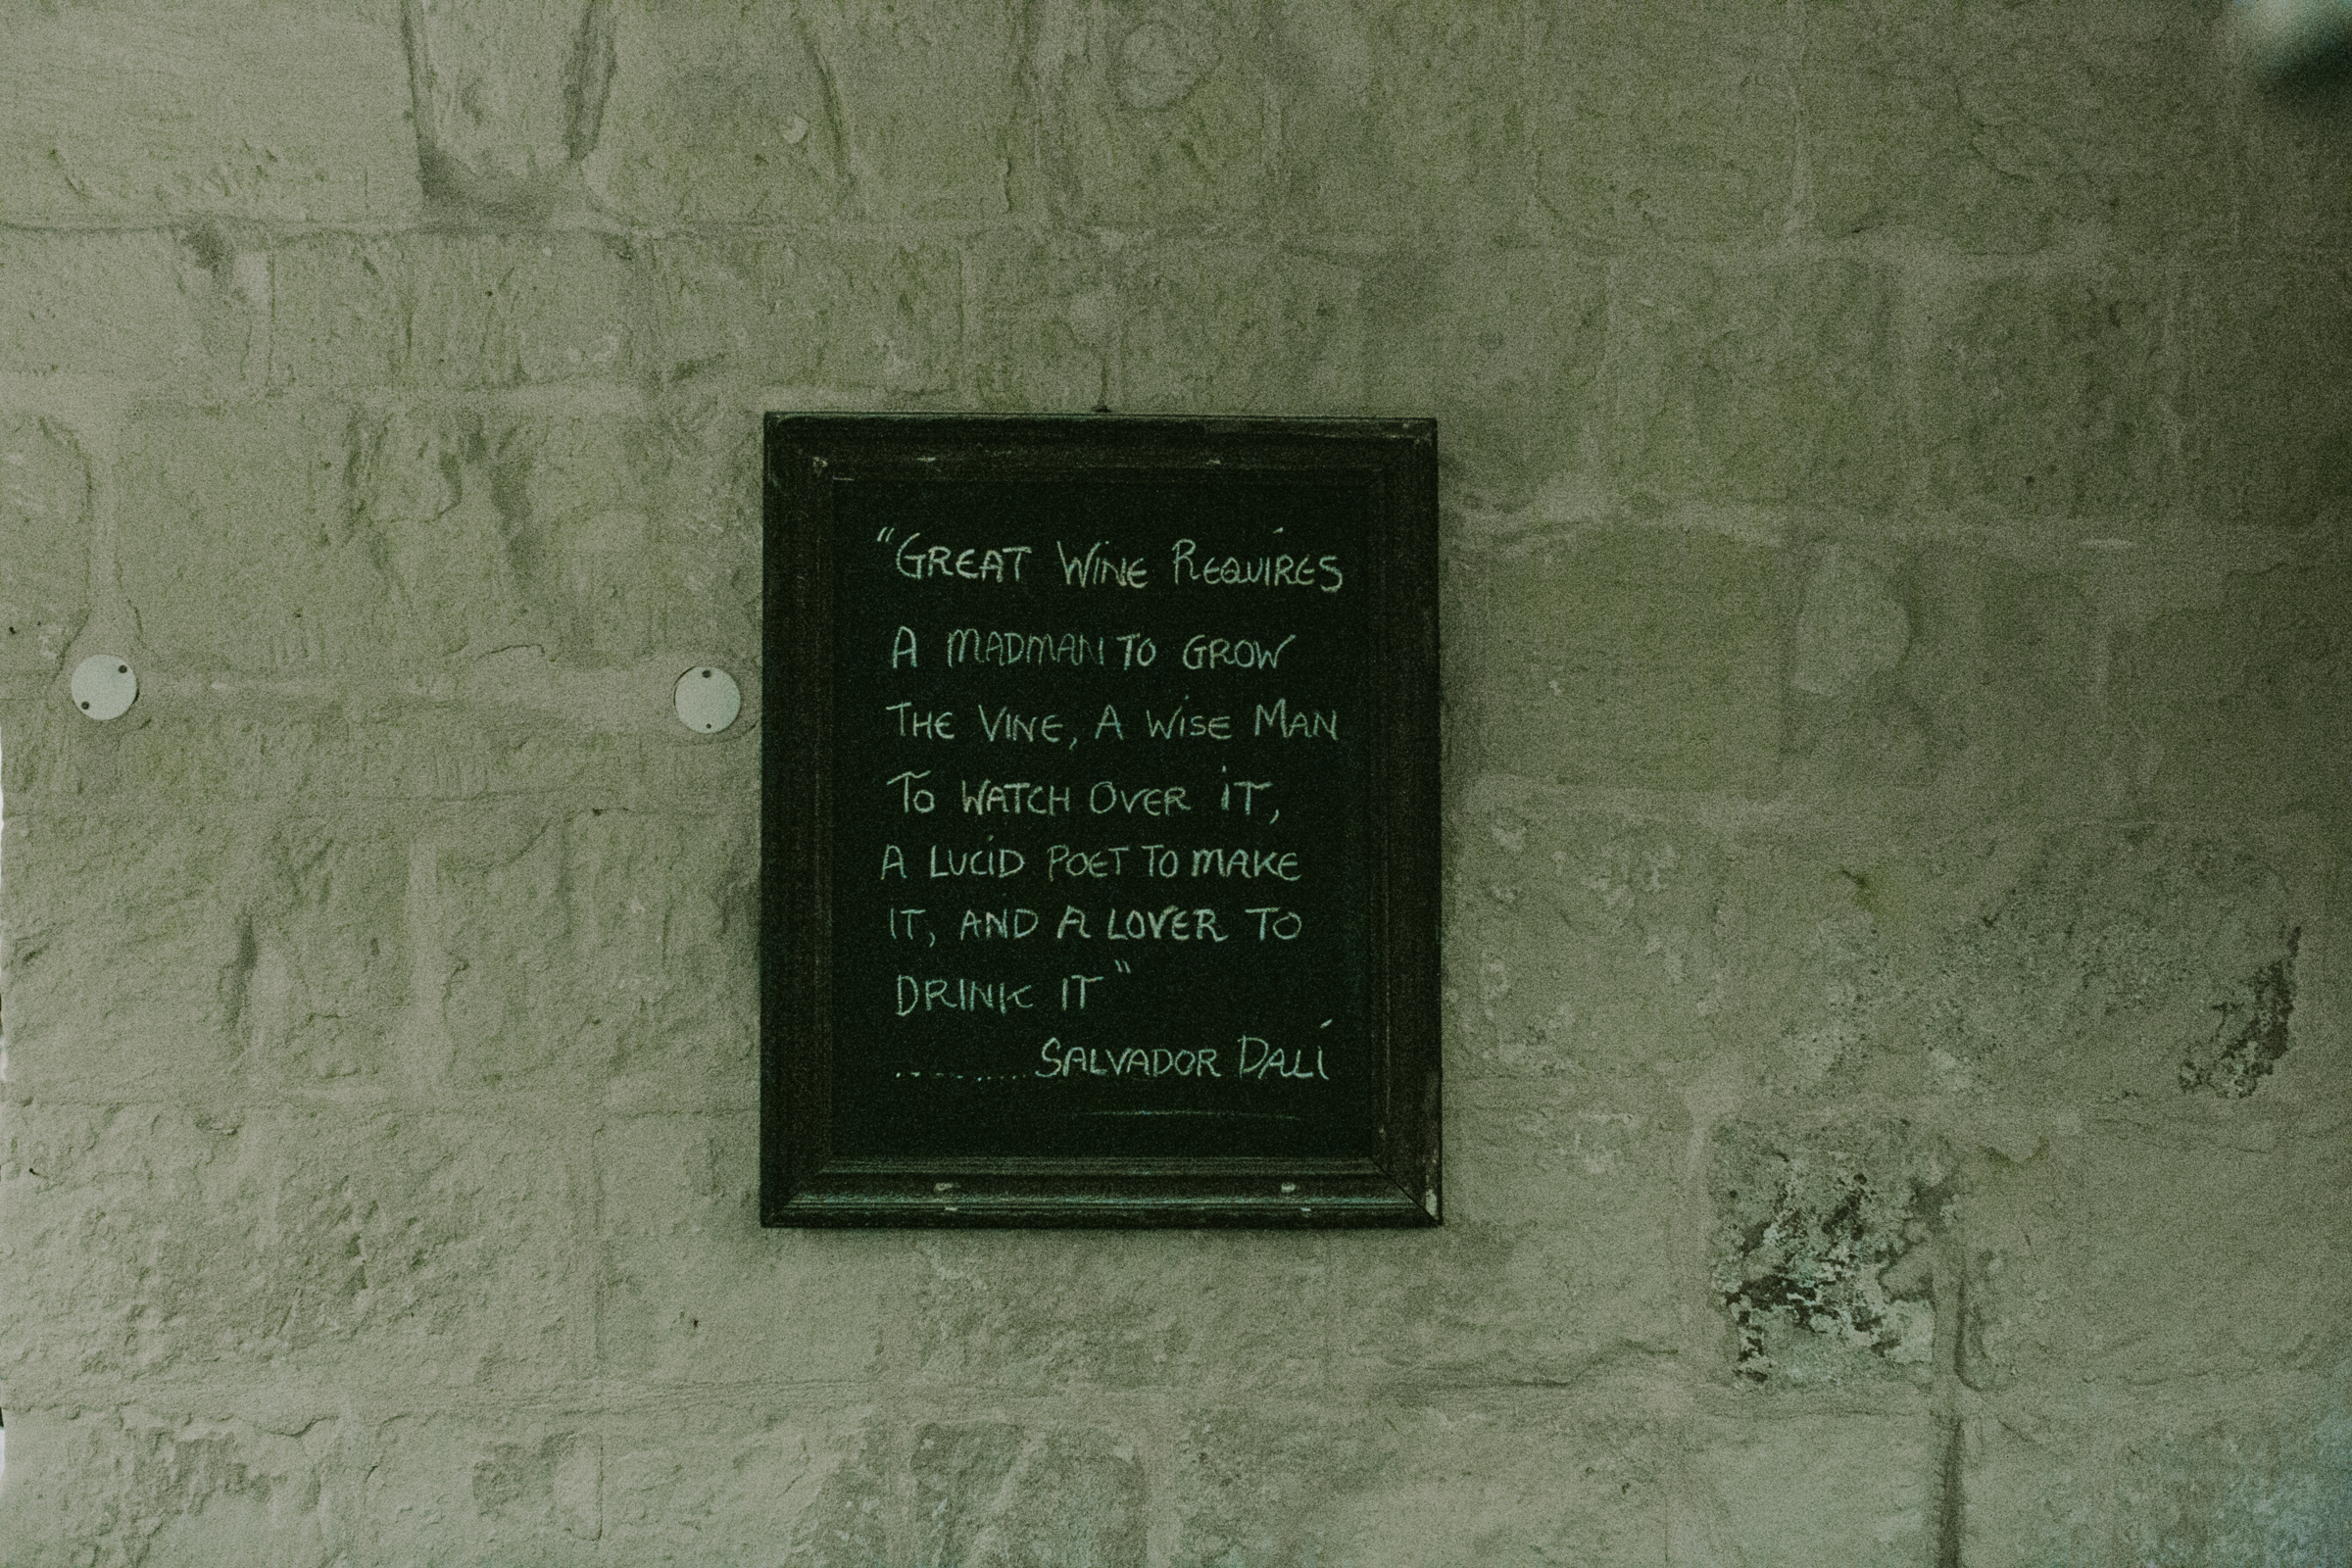 "GREAT WINE REQUIRES
A MADMAN TO GROW
THE VINE, A WISE MAN
TO WATCH OVER IT,
A LUCID POET TO MAKE
IT, AND A LOVER TO
DRINK IT"
.........SALVADOR DALÍ